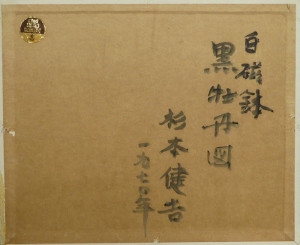 白磁鉢
黒牡丹図
杉本健吉
一九七〇年